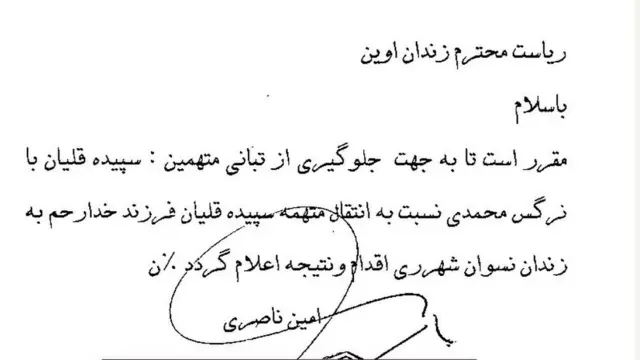 ریاست محترم زندان اوین
باسلام
مقرر است تا به جهت جلوگیری از تبانی متهمین : سپیده قلیان با
نرگس محمدی نسبت به انتقال متهمه سپیده قلیان فرزند خدارحم به
زندان نسوان شهرری اقدام و نتیجه اعلام گردد ٪ن
امین ناصری